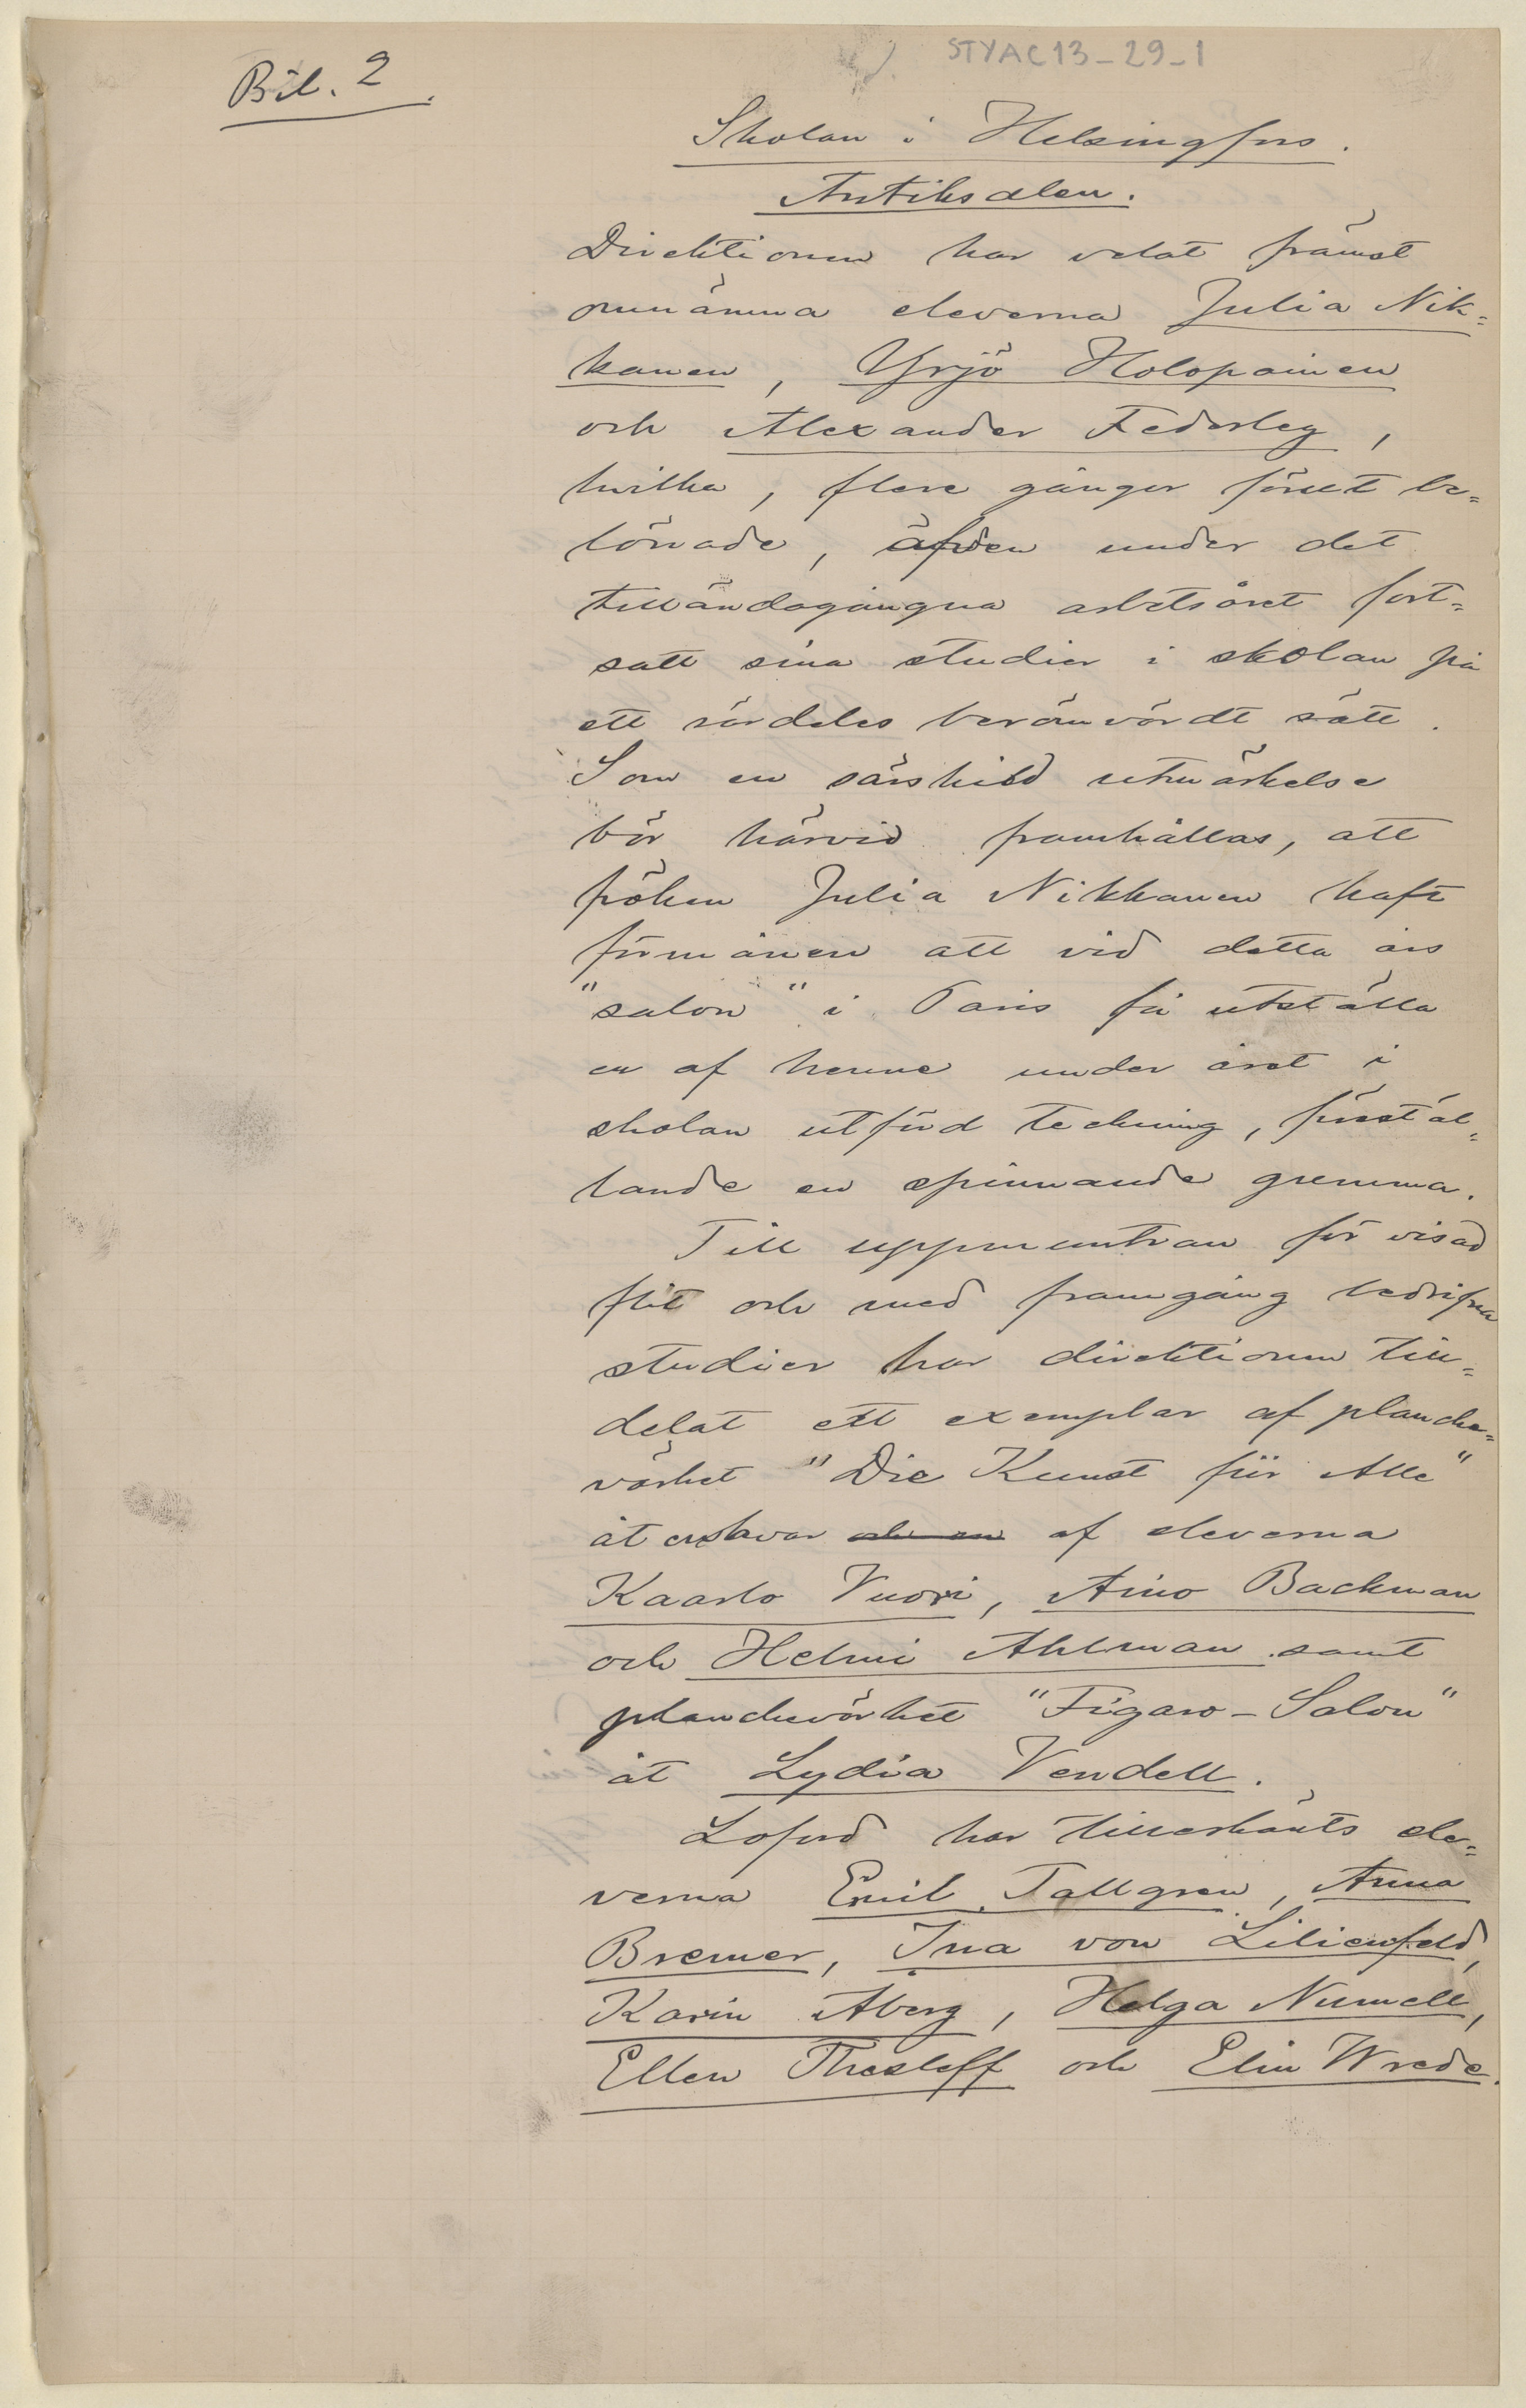 STYAC13_29_1
Bil. 2.
Skolan i Helsingfors.
Antiksalen.
Direktionen har velat främst
omnämna eleverna Julia Nik=
kanen, Yrjö Holopainen
och Alexander Federley,
hvilka, flere gånger förut be=
lönade, äfven under det
tilländagångna arbetsåret fort=
satt sina studier i skolan på
ett särdeles berömvärdt sätt.
Som en särskild utmärkelse
bör härvid framhållas, att
fröken Julia Nikkanen haft
förmånen att vid detta års
"salon" i Paris få utställa
en af henne under året i
skolan utförd teckning, förestäl=
lande en spinnande gumma.
Till uppmuntran för visad
flit och med framgång bedrifna
studier har direktionen till=
delat ett exemplar af planche=
värket "Die Kunst für Alle"
åt enhvar af eleverna
Kaarlo Vuori, Aino Backman
och Helmi Ahlman samt
planchevärket "Figaro-Salon"
åt Lydia Vendell.
Loford har tillerkänts ele=
verna Emil Tallgren, Anna
Bremer, Ina von Lilienfeld,
Karin Åberg, Helga Numell,
Ellen Thesleff och Elin Wrede.